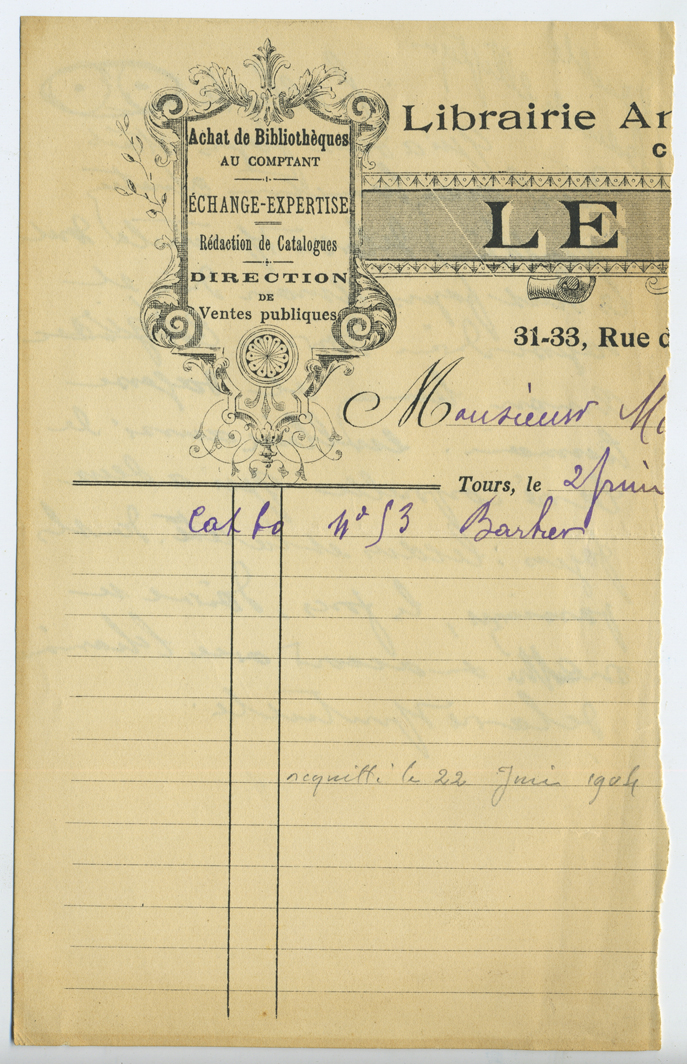 Achat de Bibliothèques
AU COMPTANT
ÉCHANGE-EXPERTISE
Rédaction de Catalogues
DIRECTION
DE
Ventes publiques
Librairie An
C
LE
31-33, Rue d
Monsieur Mo
Tours, le 2 juin
Cat 60 N° 53 Barbier
acquitté le 22 Juin 1904